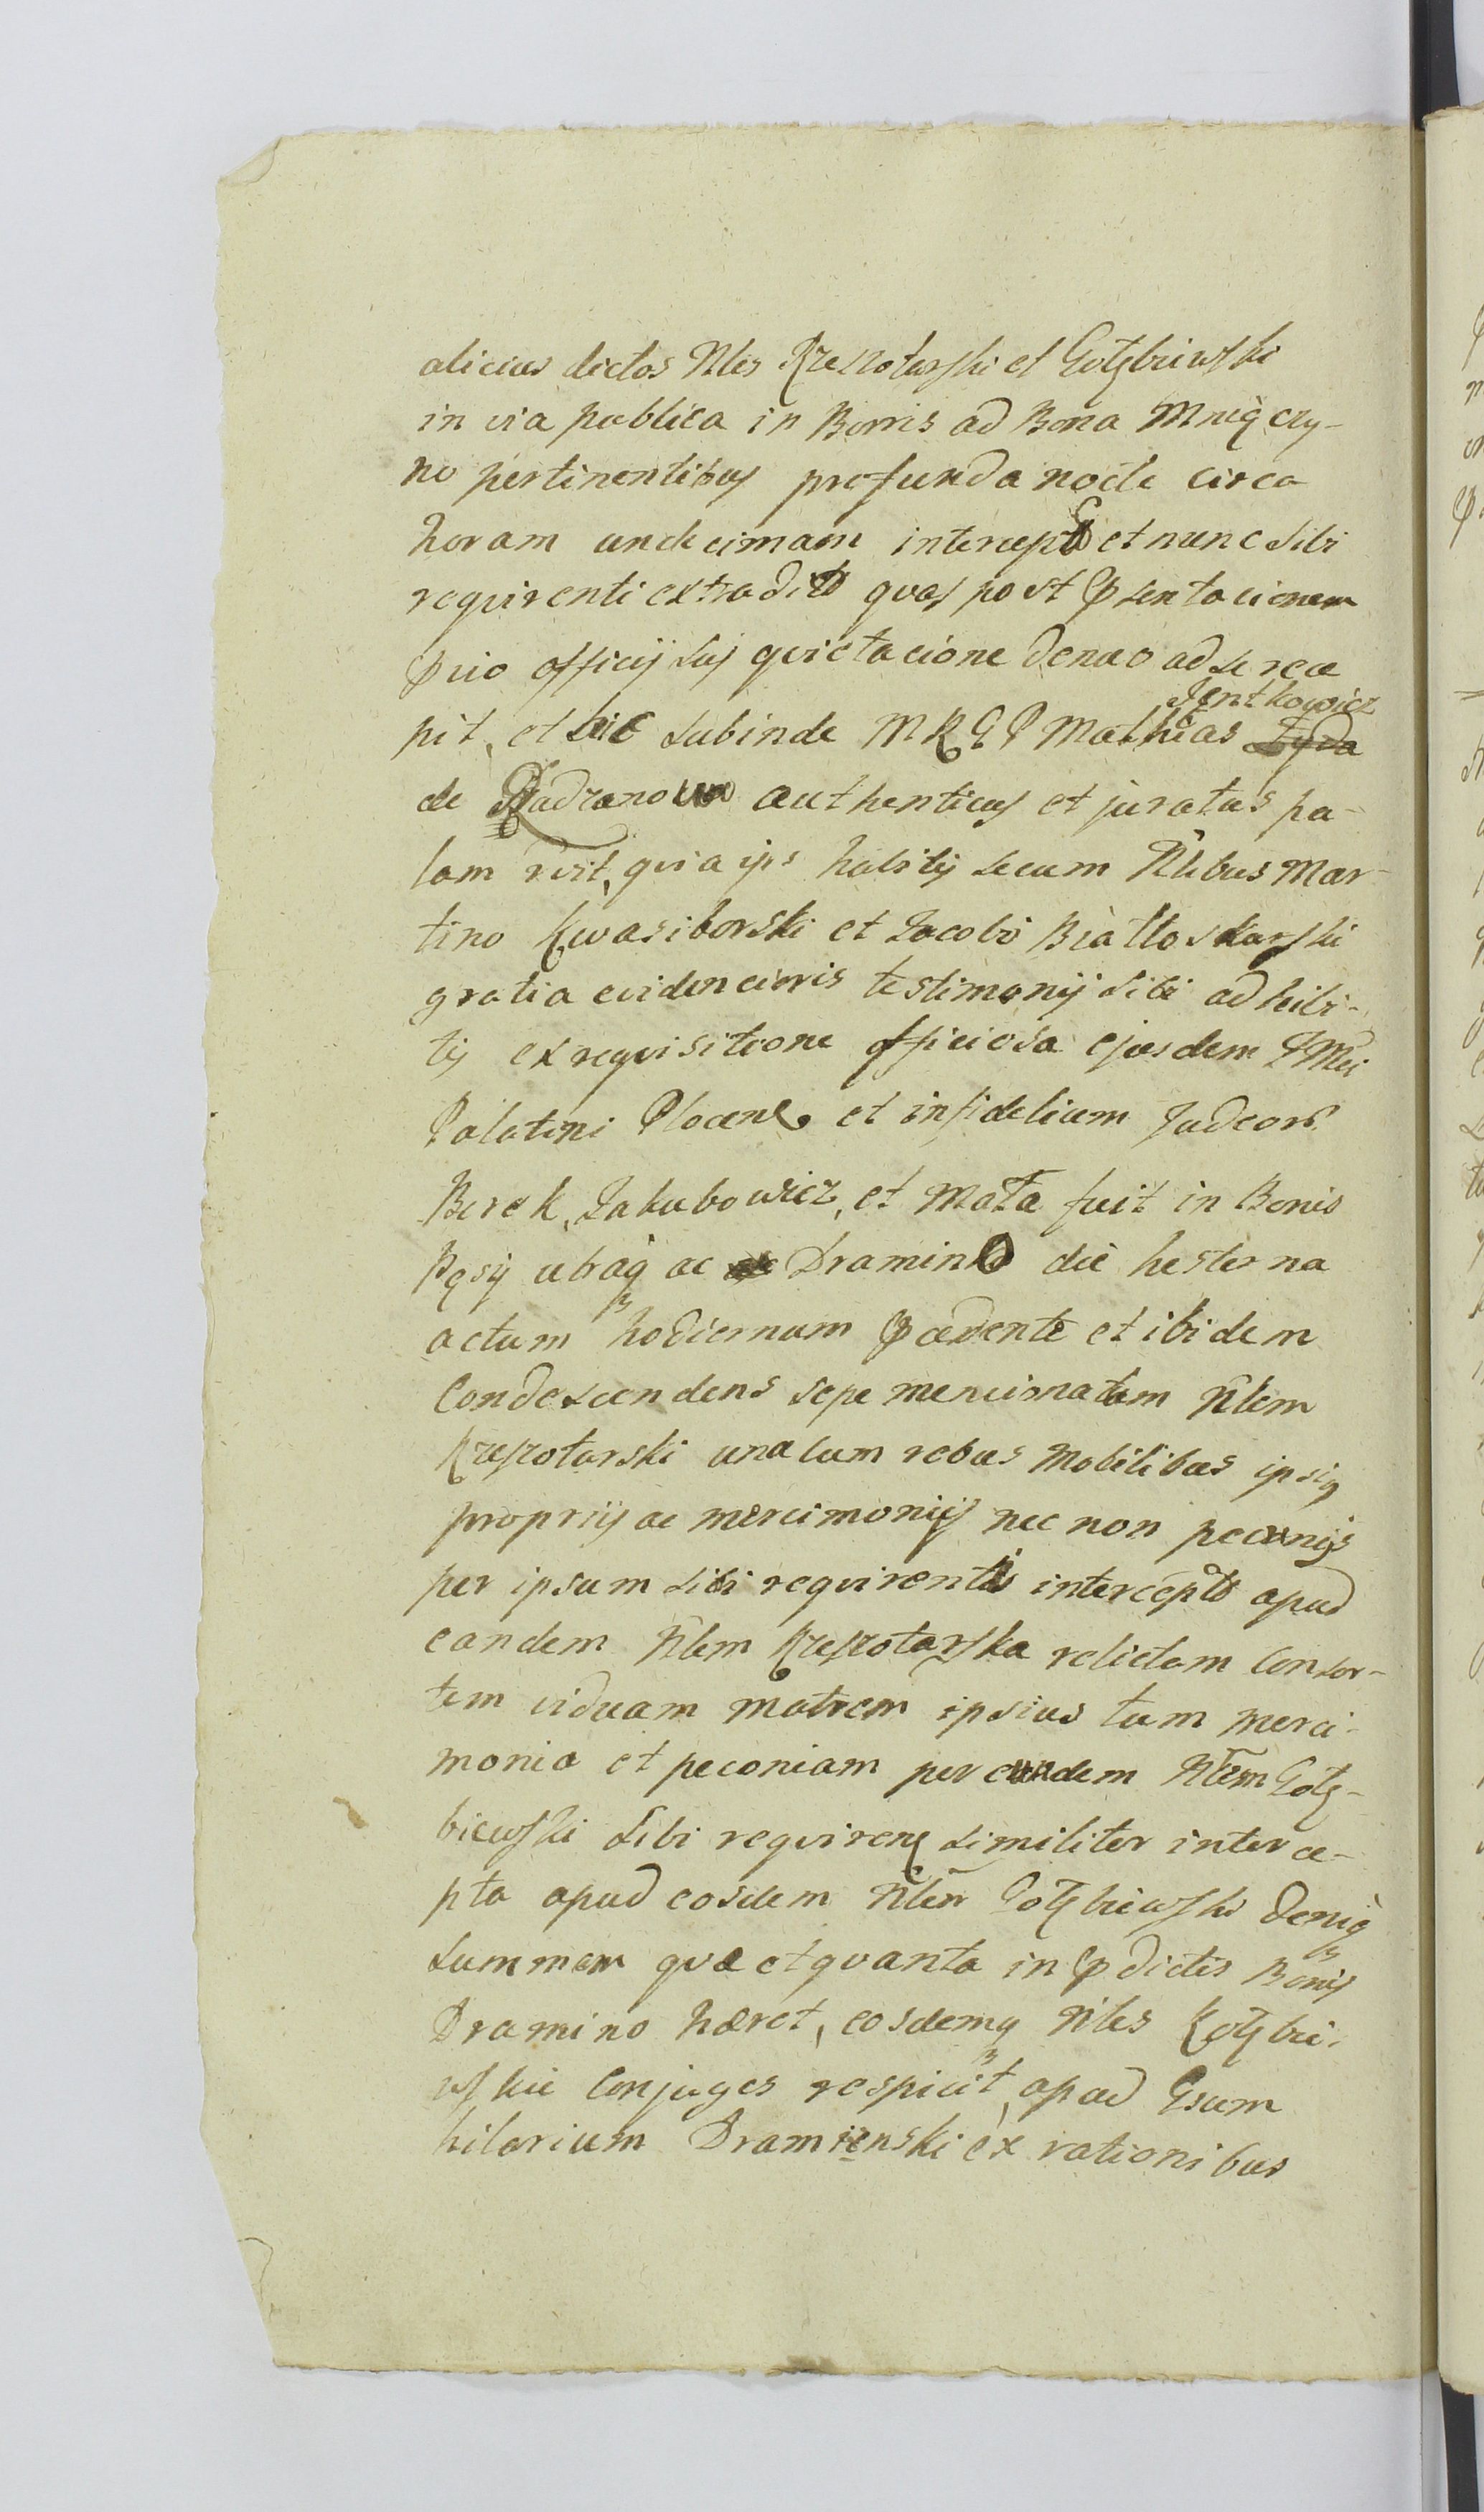 alicius dictos Nles Krzeszotarski et Gołębiewski
in via publica in Bonis ad Bona Mniączy-
no pertinentibus profunda nocte circa
horam undecimam intercept et nunc sibi
requirenti extradit quas post Psentacionem
Prio officij suj quietacione denuo ad se rece
pit, et hic subinde M R G P Mathias Jentkowicz
de Radzanowo authenticus et juratus pa-
lam rvit, quia ips habitis secum Nlibus Mar-
tino Kwasiborski et Jacobo Białłoskorski
gratia evidencioris testimonij sibi adhibi-
tis ex requisitione officiosa ejusdem IMci
Palatini Plocens et infidelium Judeor
Berek, Jakubowicz, et Mota fuit in Bonis
Pęsy utraq ac Dramino die hesterna
actum hodiernum Pcedente et ibidem
Condescendens sepe mencionatum Nlem
Krzeszotarski una cum rebus mobilibus ipsiq
proprijs ac mercimonijs nec non pecunijs
per ipsum sibi requirenti intercept apud
eandem Nlem Krzeszotarska relictam Consor-
tem viduam matrem ipsius tum merci-
monia et pecuniam per eundem Nlem Gołę-
biewski sibi requiren similiter interce-
pta apud eosdem Nles Gołębiewski deniq
summam quæ et quanta in Pdictis Bonis
Dramino hæret, eosdemq Nles Gołębie-
wskie Conjuges respicit, apud Gsum
hilarium Dramienski ex rationibus